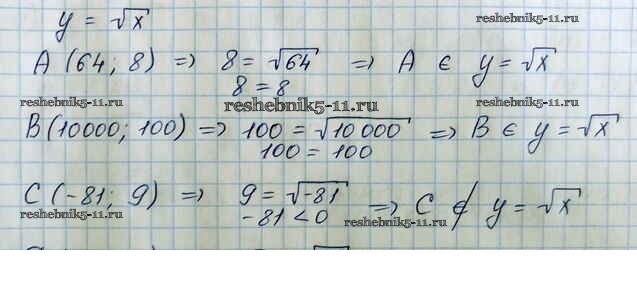 y = √x
reshebnik5-11.ru
A (64; 8) => 8 = √64 => A ∈ y = √x
8 = 8
reshebnik5-11.ru reshebnik5-11.ru reshebnik5-11.ru
B (10000; 100) => 100 = √10 000 => B ∈ y = √x
100 = 100
C (-81; 9) => 9 = √-81 => C ∉ y = √x
-81 < 0
reshebnik5-11.ru reshebnik5-11.ru